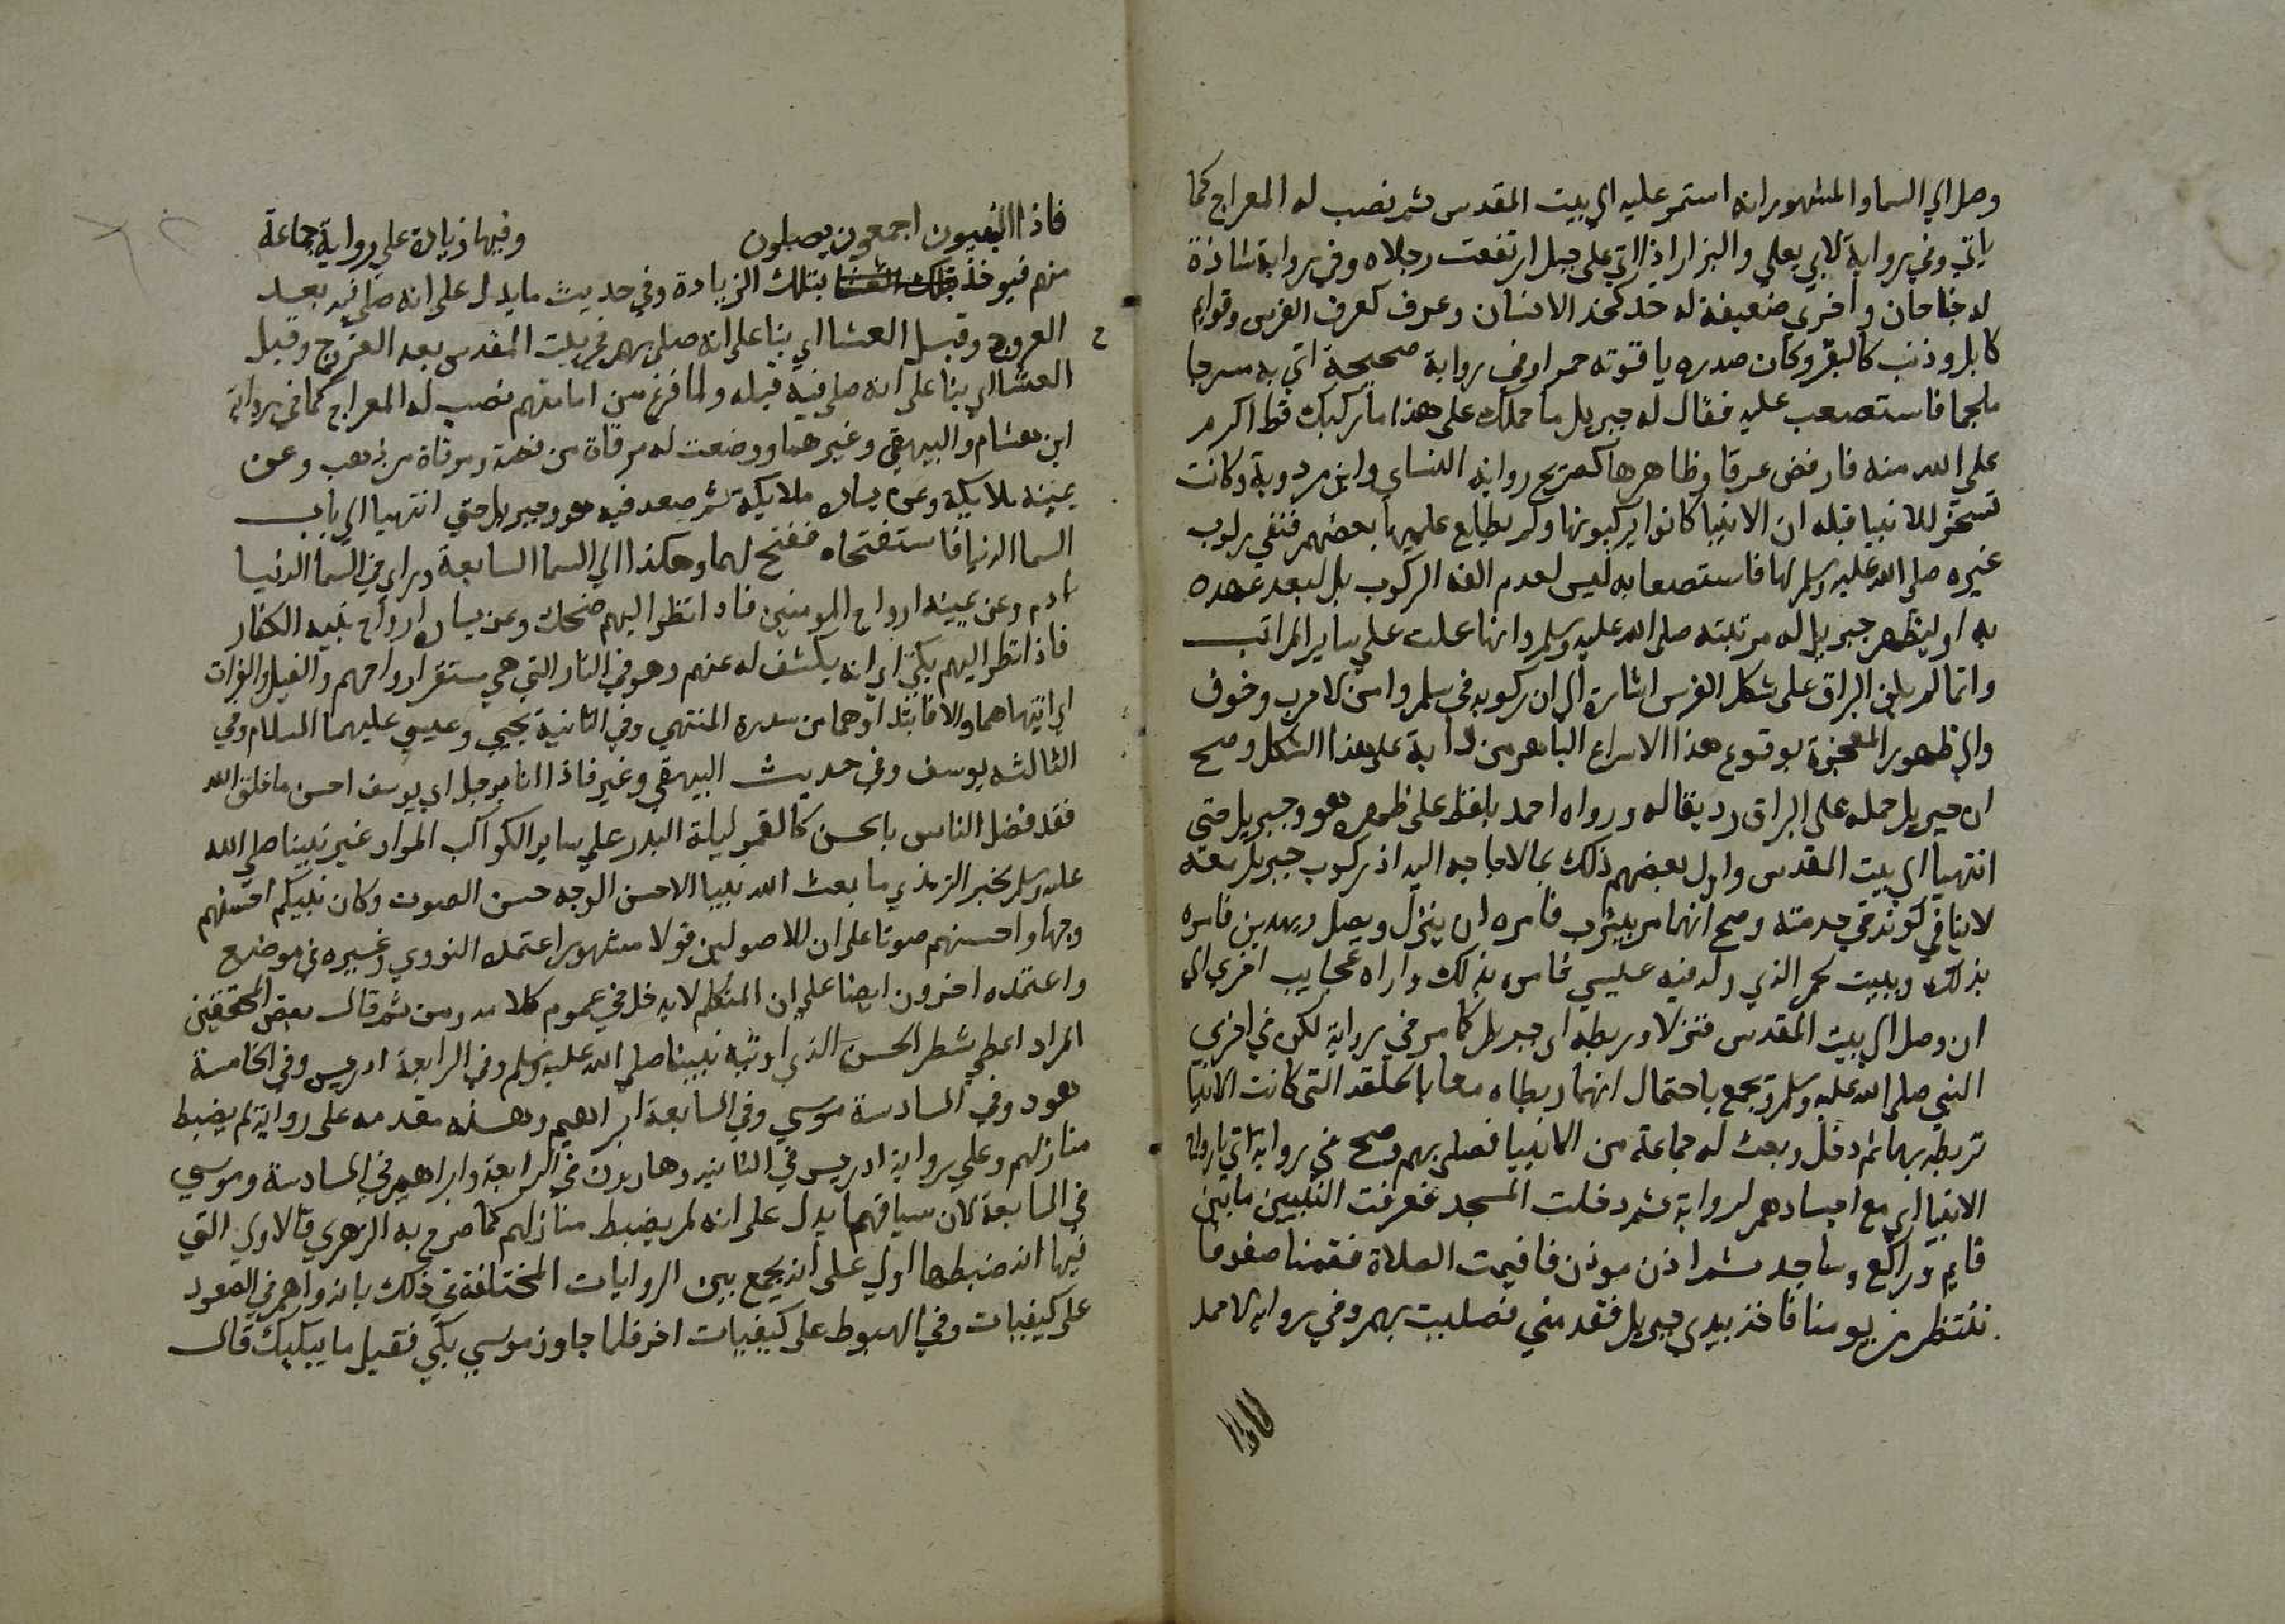 وصل الي السما والمشهور انه استمر عليه الي بيت المقدس ثم نصب له المعراج كما
ياتي وفي رواية لابي يعلي والبزار اذا اتي علي جبل ارتفعت رجلاه وفي رواية شاذة
له جناحان واخري ضعيفة له خد كخد الانسان وعرف كعرف الفرس وقوايم
كابل وذنب كالبقر وكان صدره ياقوته حمرا وفي رواية صحيحة اتي به مسرجا
ملجما فاستصعب عليه فقال له جبريل ما حملك علي هذا ما ركبك قط اكرم
علي الله منه فارفض عرقا وظاهرها كصريح رواية النساي وابن مردوية وكانت
تسخر للانبيا قبله ان الانبيا كانوا يركبونها ولم يطلع عليها بعضهم فنفي ركوب
غيره صلي الله عليه وسلم لها فاستصعابه ليس لعدم الفه الركوب بل لبعد عهده
به او ليظهر جبريل له مرتبته صلي الله عليه وسلم وانها علت علي ساير المراتب
وانما لم يكن البراق علي شكل الفرس اشارة الي ان ركوبه في سلم وامن لا حرب وخوف
والي ظهور المعجزة بوقوع هذا الاسراع الباهر من دابة علي هذا الشكل وصح
ان جبريل حمله علي البراق رديفا له ورواه احمد بلفظ علي ظهره هو وجبريل حتي
انتهيا الي بيت المقدس واول بعضهم ذلك بما لا حاجه اليه اذ ركوب جبريل معه
لا ينافي كونه في خدمته وصح انهما مر بيثرب فامره ان ينزل ويصل وبمدين فامره
بذلك وببيت لحم الذي ولد فيه عيسي فامره بذلك واراه عجايب اخري الي
ان وصل الي بيت المقدس فنزلا وربطه اي جبريل كما مر في رواية لكن في اخري
النبي صلي الله عليه وسلم ويجمع باحتمال انهما ربطاه معا بالحلقه التي كانت الانبيا
تربطه بها ثم دخل وبعث له جماعة من الانبيا فصلي بهم وصح في رواية اتي بارواح
الانبيا اي مع اجسادهم لرواية ثم دخلت المسجد فعرفت النبيين ما بين
قايم وراكع وساجد ثم اذن موذن فاقيمت الصلاة فقمنا صفوفا
ننتظر من يومنا فاخذ بيدي جبريل فقدمني فصليت بهم وفي رواية لاحمد
فاذا النبيون اجمعون يصلون وفيها زيادة علي رواية جماعة
منهم فيوخذ بتلك الزيادة وفي حديث ما يدل علي انه صلي فيه بعد
العروج وقبل العشا اي بنا علي انه صلي بهم في بيت المقدس بعد العروج وقيل
العشا اي بنا علي انه صلي فيه قبله ولما فرغ من امامتهم نصب له المعراج كما في رواية
ابن هشام والبيهقي وغيرهما ووضعت له مرقاة من فضة ومرقاة من ذهب وعن
يمينه ملايكة وعن يساره ملايكة ثم صعد فيه هو وجبريل حتي انتهيا الي باب
السما الدنيا فاستفتحاه ففتح لهما وهكذا الي السما السابعة وراي في السما الدنيا
ادم وعن يمينه ارواح المومنين فاذا نظر اليهم ضحك وعن يساره ارواح بنيه الكفار
فاذا نظر اليهم بكي اي انه يكشف له عنهم وهو في النار التي هي مستقر ارواحهم والنيل والفرات
اي انتهاهما والا فابتداوهما من سدرة المنتهي وفي الثانية يحيي وعيسي عليهما السلام وفي
الثالثه يوسف وفي حديث البيهقي وغير فاذا انا برجل اي يوسف احسن ما خلق الله
فقد فضل الناس بالحسن كالقمر ليلة البدر علي ساير الكواكب المراد غير نبينا صلي الله
عليه وسلم لخبر الترمذي ما بعث الله نبيا الا حسن الوجه حسن الصوت وكان نبيكم احسنهم
وجها واحسنهم صوتا علي ان للاصوليين قولا مشهورا اعتمده النووي وغيره في موضع
واعتمده اخرون ايضا علي ان المتكلم لا يدخل في عموم كلامه ومن ثم قال بعض المحققين
المراد اعطي شطر الحسن الذي اوتيه نبينا صلي الله عليه وسلم وفي الرابعة ادريس وفي الخامسة
هود وفي السادسة موسي وفي السابعة ابراهيم وهذه مقدمه علي رواية لم يضبط
منازلهم وعلي رواية ادريس في الثانيه وهارون في الرابعة وابراهيم في السادسة وموسي
في السابعة لان سياقهما يدل علي انه لم يضبط منازلهم كما صرح به الزهري فالاولي التي
فيها انه ضبطها اولي علي انه يجمع بين الروايات المختلفة في ذلك بانه راهم في الصعود
علي كيفيات وفي الهبوط علي كيفيات اخر فلما جاوز موسي بكي فقيل ما يبكيك قال